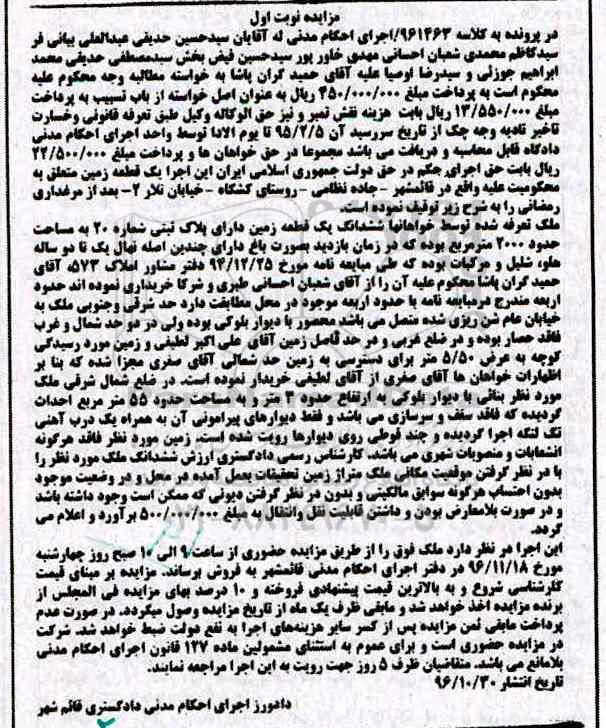 مزایده نوبت اول
در پرونده به کلاسه ۹۶۱۴۶۳/اجرای احکام مدنی له آقایان سیدحسین حدیقی عبدالعلی بیانی فر
سیدکاظم محمدی شعبان احسانی مهدی خاور پور سیدحسین فیض بخش سیدمصطفی حدیقی محمد
ابراهیم جوزئی و سیدرضا اوصیا علیه آقای حمید گران پاشا به خواسته مطالبه وجه محکوم علیه
محکوم است به پرداخت مبلغ ۴۵۰/۰۰۰/۰۰۰ ریال به عنوان اصل خواسته از باب تسبیب به پرداخت
مبلغ ۱۳/۵۵۰/۰۰۰ ریال بابت هزینه نقش تمبر و نیز حق الوکاله وکیل طبق تعرفه قانونی وخسارت
تاخیر تادیه وجه چک از تاریخ سررسید آن ۹۵/۲/۵ تا یوم الادا توسط واحد اجرای احکام مدنی
دادگاه قابل محاسبه و دریافت می باشد مجموعا در حق خواهان ها و پرداخت مبلغ ۲۲/۵۰۰/۰۰۰
ریال بابت حق اجرای حکم در حق دولت جمهوری اسلامی ایران این اجرا یک قطعه زمین متعلق به
محکومیت علیه واقع در قائمشهر - جاده نظامی - روستای کشگاه - خیابان تلار ۲- بعد از مرغداری
رمضانی را به شرح زیر توقیف نموده است.
ملک تعرفه شده توسط خواهانها ششدانگ یک قطعه زمین دارای پلاک ثبتی شماره ۲۰ به مساحت
حدود ۲۰۰۰ مترمربع بوده که در زمان بازدید بصورت باغ دارای چندین اصله نهال یک تا دو ساله
هلو، شلیل و مرکبات بوده که طی مبایعه نامه مورخ ۹۴/۱۲/۲۵ دفتر مشاور املاک ۵۷۳، آقای
حمید گران پاشا محکوم علیه آن را از آقای شعبان احسانی طبری و شرکا خریداری نموده اند حدود
اربعه مندرج درمبایعه نامه با حدود اربعه موجود در محل مطابقت دارد حد شرقی وجنوبی ملک به
خیابان عام شن ریزی شده متصل می باشد محصور با دیوار بلوکی بوده ولی در دو حد شمال و غرب
فاقد حصار بوده و در ضلع غربی و در حد فاصل زمین آقای علی اکبر لطیفی و زمین مورد رسیدگی
کوچه به عرض ۵/۵۰ متر برای دسترسی به زمین حد شمالی آقای صفری مجزا شده که بنا بر
اظهارات خواهان ها آقای صفری از آقای لطیفی خریدار نموده است. در ضلع شمال شرقی ملک
مورد نظر بنائی با دیوار بلوکی به ارتفاع حدود ۳ متر و به مساحت حدود ۵۵ متر مربع احداث
گردیده که فاقد سقف و سرسازی می باشد و فقط دیوارهای پیرامونی آن به همراه یک درب آهنی
تک لنگه اجرا گردیده و چند قوطی روی دیوارها رویت شده است. زمین مورد نظر فاقد هرگونه
انشعابات و منصوبات شهری می باشد. کارشناس رسمی دادگستری ارزش ششدانگ ملک مورد نظر را
با در نظر گرفتن موقعیت مکانی ملک متراژ زمین تحقیقات بعمل آمده در محل و در وضعیت موجود
بدون احتساب هرگونه سوابق مالکیتی و بدون در نظر گرفتن دیونی که ممکن است وجود داشته باشد
و در صورت بلامعارض بودن و داشتن قابلیت نقل وانتقال به مبلغ ۵۰۰/۰۰۰/۰۰۰ برآورد و اعلام می
گردد.
این اجرا در نظر دارد ملک فوق را از طریق مزایده حضوری از ساعت ۹ الی ۱۰ صبح روز چهارشنبه
مورخ ۹۶/۱۱/۱۸ در دفتر اجرای احکام مدنی قائمشهر به فروش برساند. مزایده بر مبنای قیمت
کارشناسی شروع و به بالاترین قیمت پیشنهادی فروخته و ۱۰ درصد بهای مزایده فی المجلس از
برنده مزایده اخذ خواهد شد و مابقی ظرف یک ماه از تاریخ مزایده وصول میگردد. در صورت عدم
پرداخت مابقی ثمن مزایده پس از کسر سایر هزینه‌های اجرا به نفع دولت ضبط خواهد شد. شرکت
در مزایده حضوری است و برای عموم به استثنای مشمولین ماده ۱۲۷ قانون اجرای احکام مدنی
بلامانع می باشد. متقاضیان ظرف ۵ روز جهت رویت به این اجرا مراجعه نمایند.
تاریخ انتشار ۹۶/۱۰/۳۰
دادورز اجرای احکام مدنی دادگستری قائم شهر